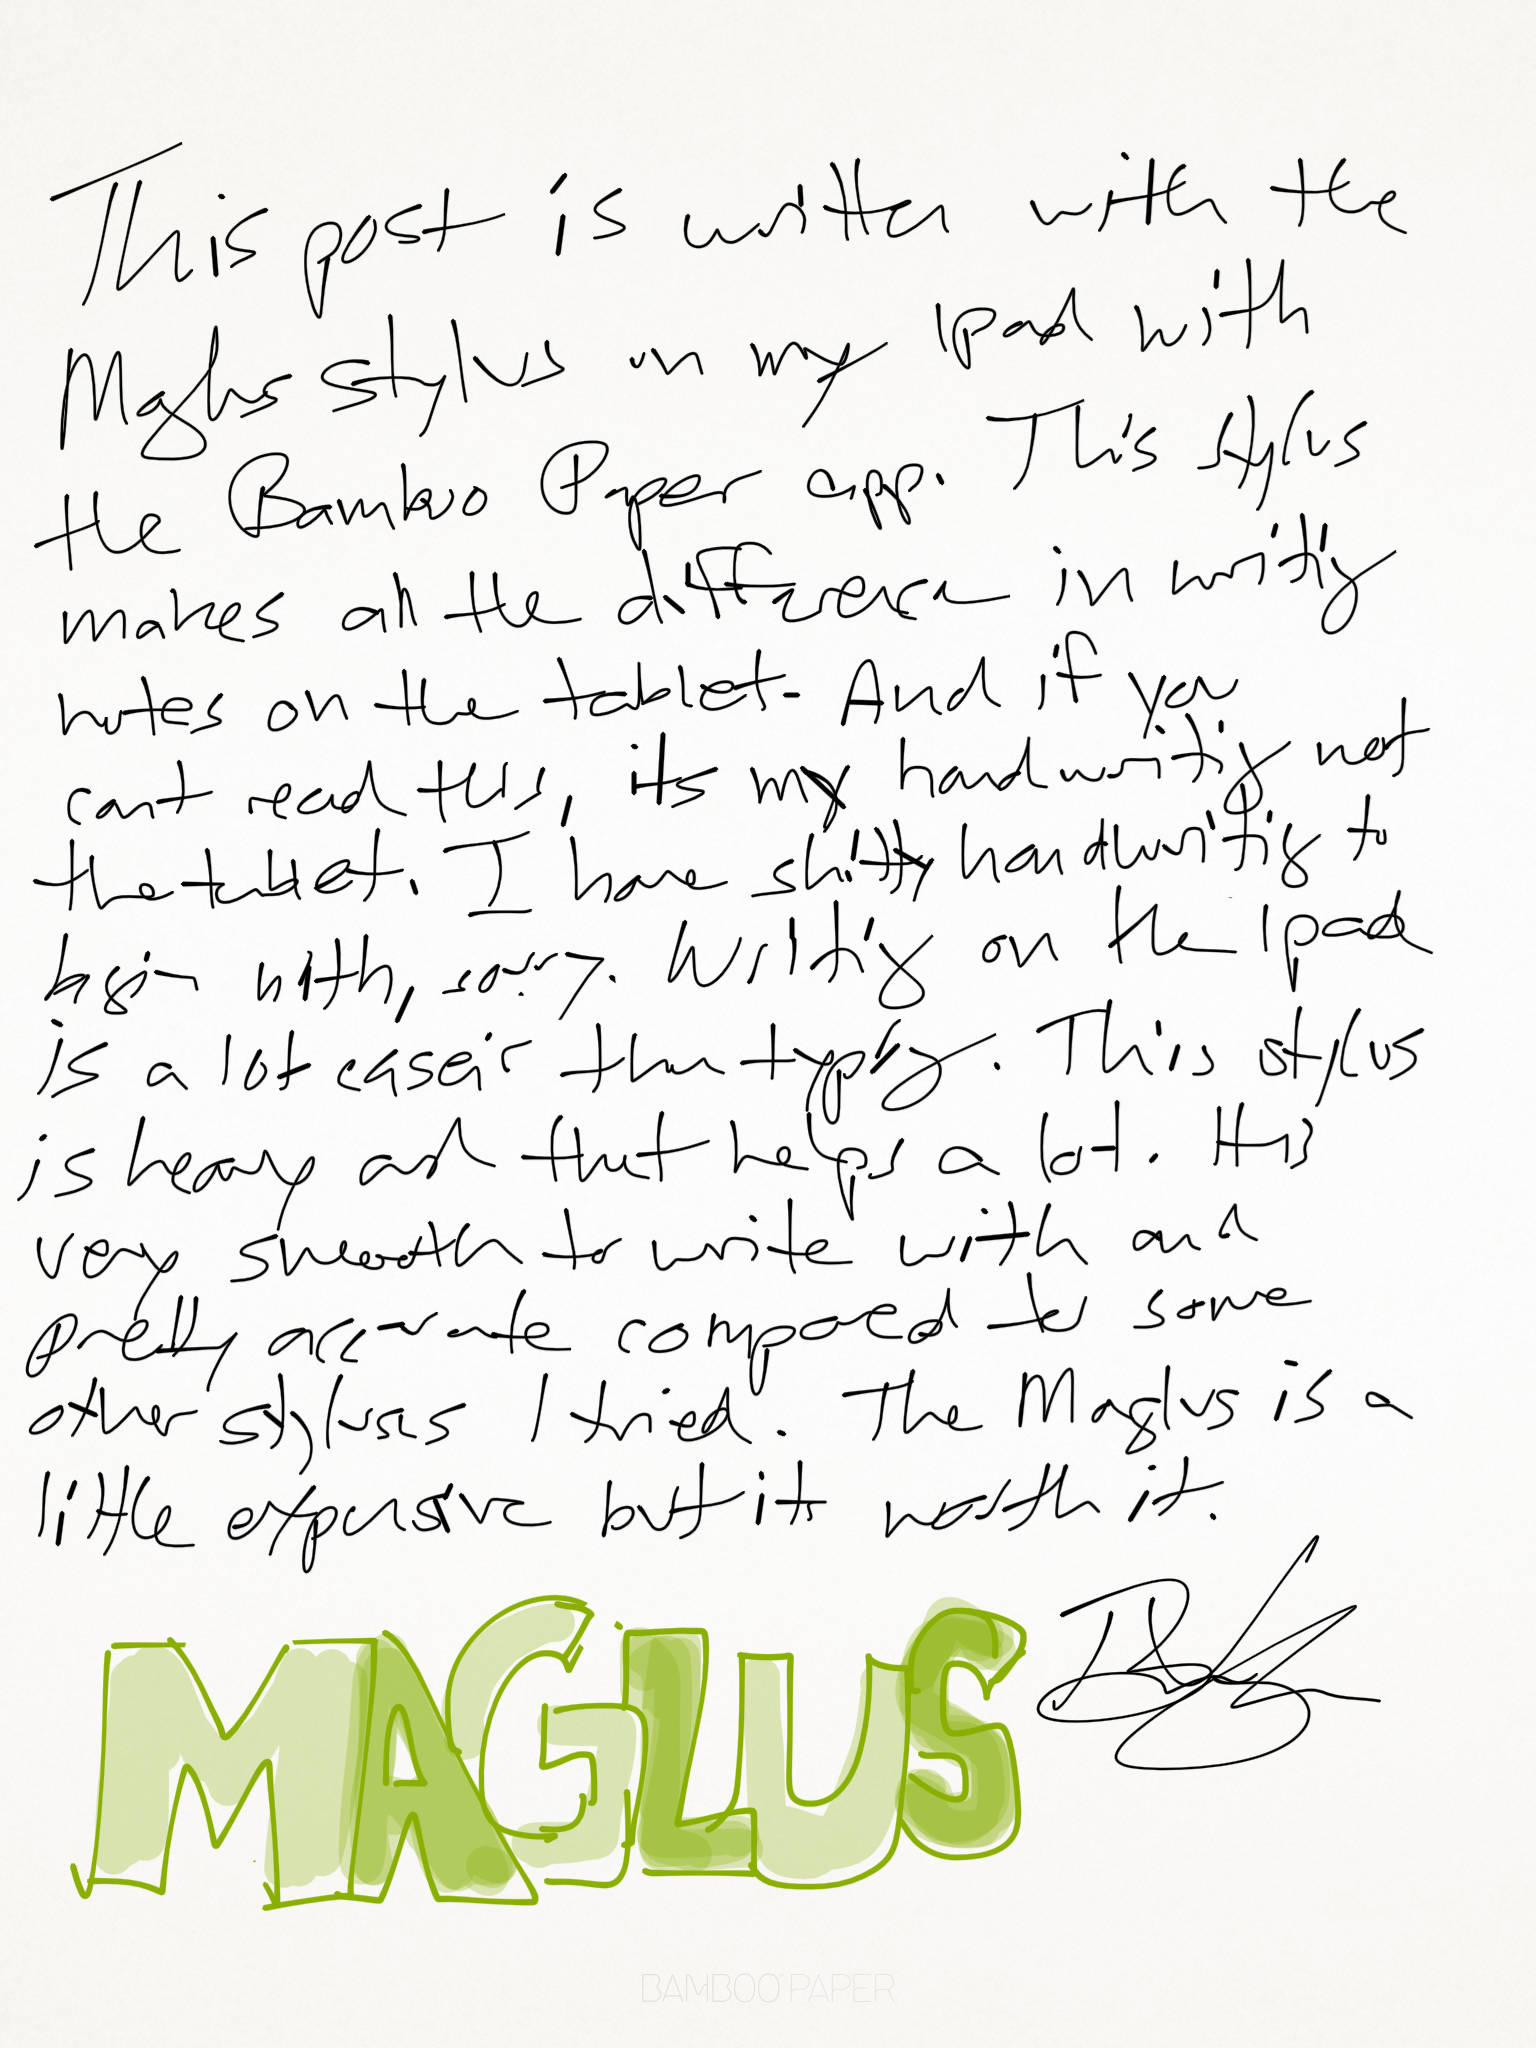 This post is written with the
Maglus stylus on my Ipad with
the Bamboo Paper app. This stylus
makes all the difference in writing
notes on the tablet. And if you
cant read this, its my handwriting not
the tablet. I have shitty handwriting to
begin with, sorry. Writing on the Ipad
is a lot easeir than typing. This stylus
is heavy and that helps a lot. Its
very smooth to write with and
pretty accurate compared to some
other styluses I tried. The Maglus is a
little expensive but its worth it.
MAGLUS
BAMBOO PAPER